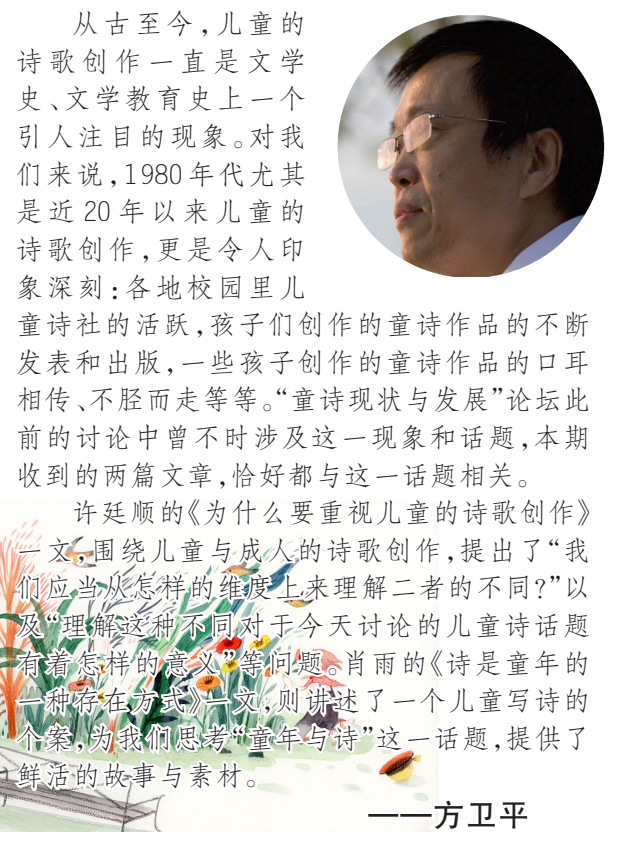 从古至今，儿童的
诗歌创作一直是文学
史、文学教育史上一个
引人注目的现象。对我
们来说，1980年代尤其
是近20年以来儿童的
诗歌创作，更是令人印
象深刻：各地校园里儿
童诗社的活跃，孩子们创作的童诗作品的不断
发表和出版，一些孩子创作的童诗作品的口耳
相传、不胫而走等等。“童诗现状与发展”论坛此
前的讨论中曾不时涉及这一现象和话题，本期
收到的两篇文章，恰好都与这一话题相关。
许廷顺的《为什么要重视儿童的诗歌创作》
一文，围绕儿童与成人的诗歌创作，提出了“我
们应当从怎样的维度上来理解二者的不同？”以
及“理解这种不同对于今天讨论的儿童诗话题
有着怎样的意义”等问题。肖雨的《诗是童年的
一种存在方式》一文，则讲述了一个儿童写诗的
个案，为我们思考“童年与诗”这一话题，提供了
鲜活的故事与素材。
——方卫平